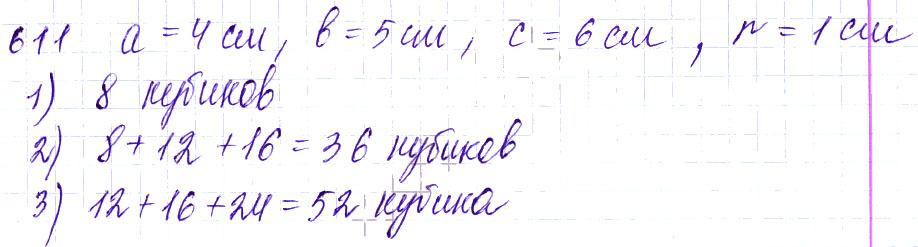 611 a = 4 см, в = 5 см, с = 6 см, n = 1 см
1) 8 кубиков
2) 8 + 12 + 16 = 36 кубиков
3) 12 + 16 + 24 = 52 кубика